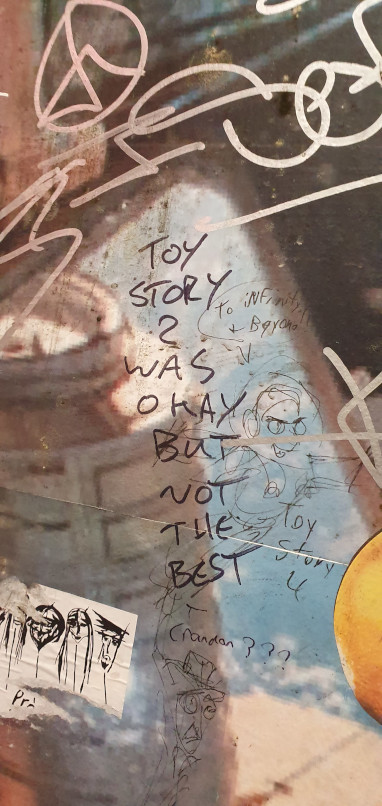 TOY
STORY
2
WAS
OKAY
BUT
NOT
THE
BEST
To iNFiNiTy
+ Beyond
Toy
Story
4
???
Pri